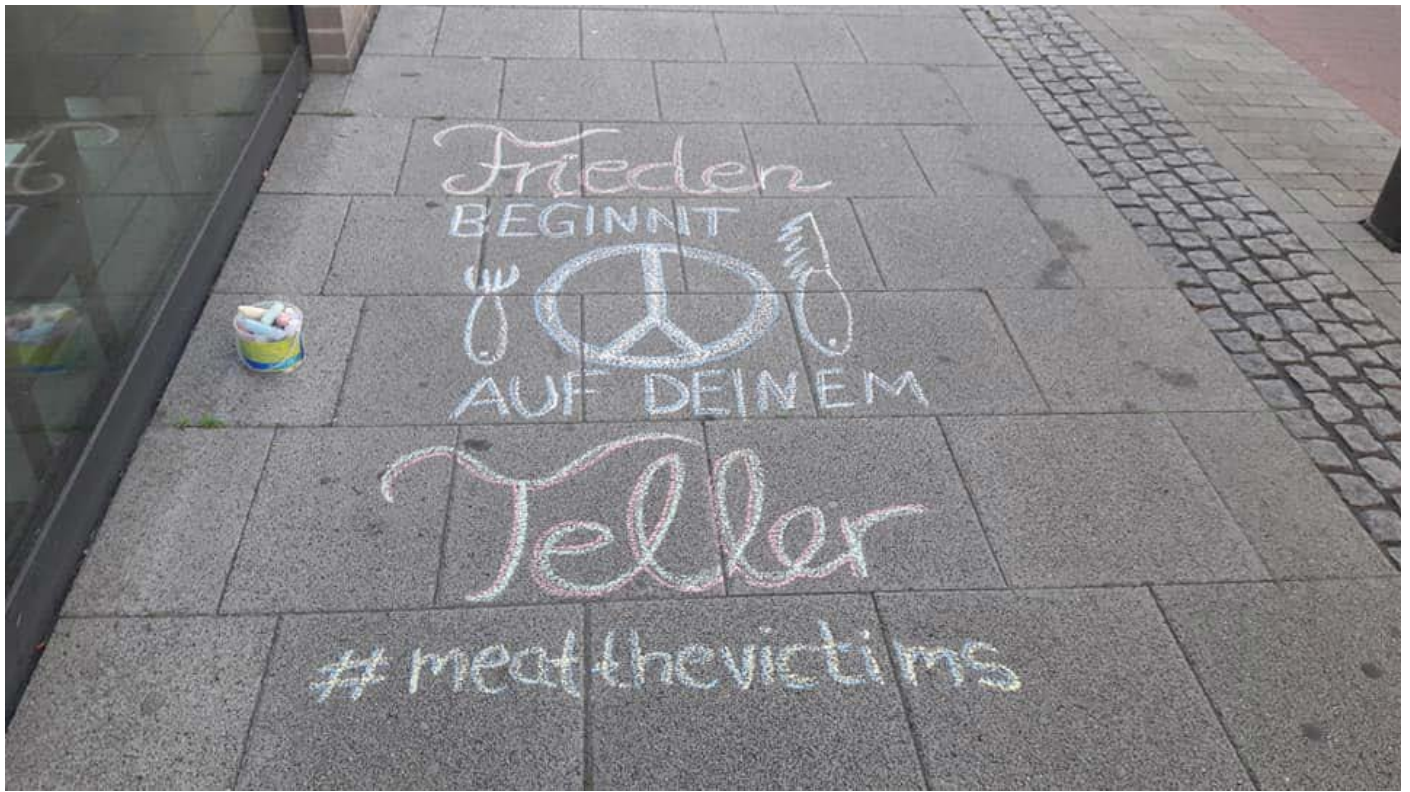 Frieden
BEGINNT
AUF DEINEM
Teller
#meatthevictims